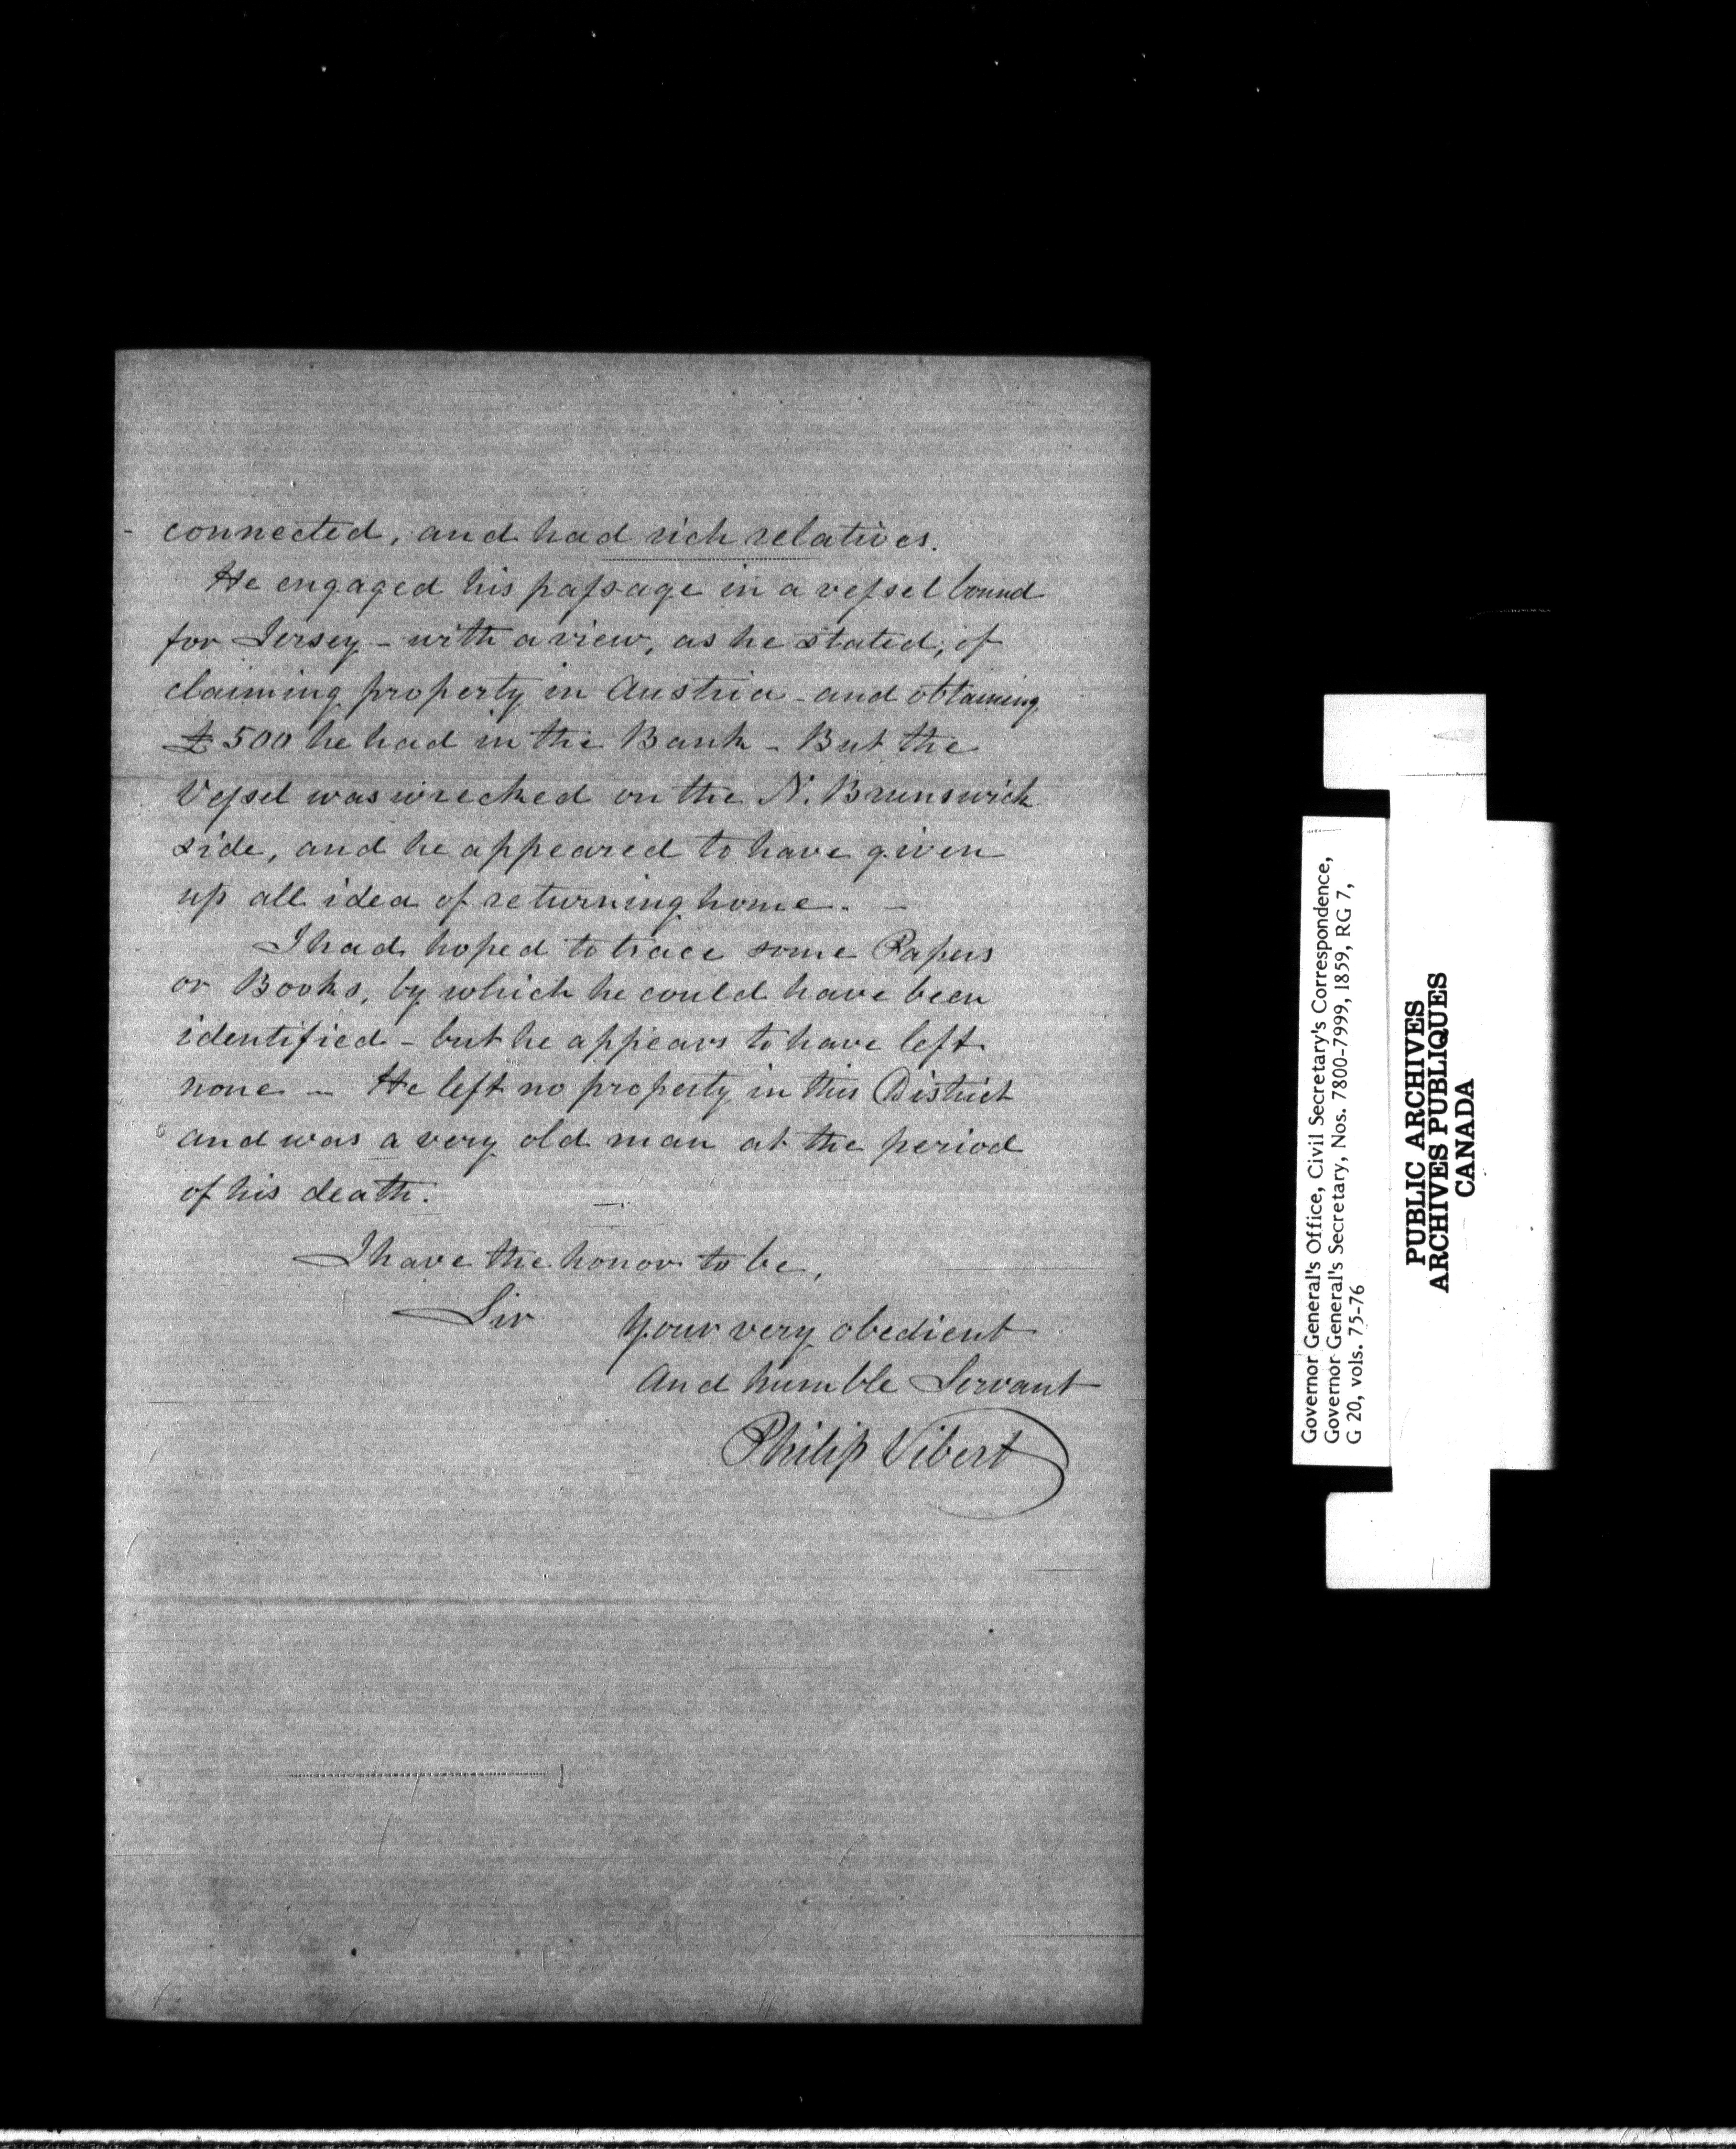 connected, and had rich relatives.
He engaged his passage in a vessel bound
for Jersey - with a view, as he stated, of
claiming property in Austria - and obtaining
£500 he had in the Bank - But the
Vessel was wrecked on the N. Brunswick
side, and he appeared to have given
up all idea of returning home. -
I had hoped to trace some Papers
or Books, by which he could have been
identified - but he appears to have left
none - He left no property in this District
and was a very old man at the period
of his death. -
I have the honor to be,
Sir
Your very obedient
And humble Servant
Philip Vibert
Governor General's Office, Civil Secretary's Correspondence,
Governor General's Secretary, Nos. 7800-7999, 1859, RG 7,
G 20, vols. 75-76
PUBLIC ARCHIVES
ARCHIVES PUBLIQUES
CANADA